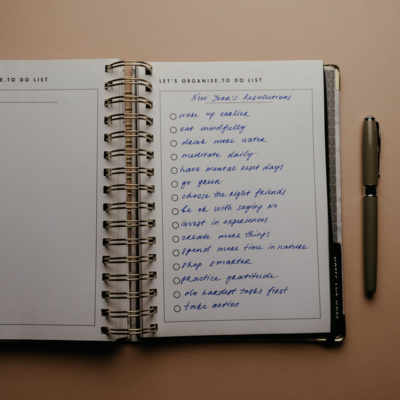 R.TO DO LIST
LET'S ORGANISE.TO DO LIST
New Year's Resolutions
wake up earlier
eat mindfully
drink more water
meditate daily
have mental reset days
go green
choose the right friends
be ok with saying no
invest in experiences
create more things
spend more time in nature
shop smarter
practice gratitude
do hardest tasks first
take action